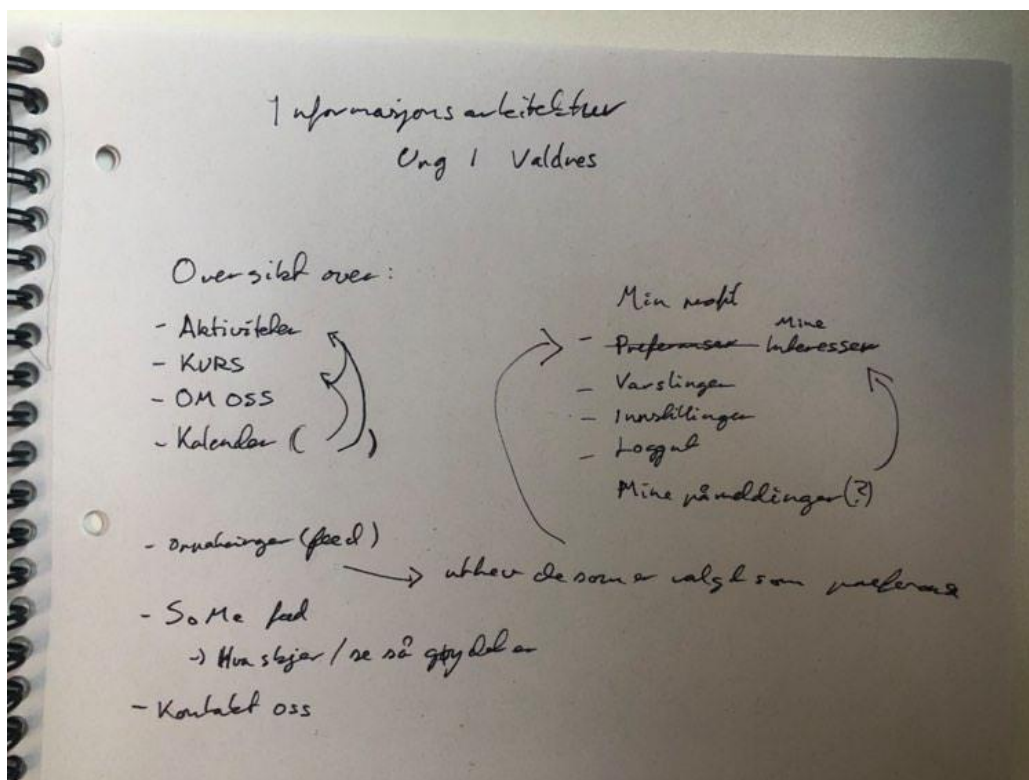 Informasjonsarkitektur
Ung i Valdres
Oversikt over:
- Aktiviteter
- KURS
- OM OSS
- Kalender ( )
- (feed)
→ uthev de som er valgt som preferanse
- SoMe feed
→ Hva skjer / se så gøy det er
- Kontakt oss
Min profil
- Preferanser Mine Interesser
- Varslinger
- Innstillinger
- Logg ut
Mine påmeldinger (?)